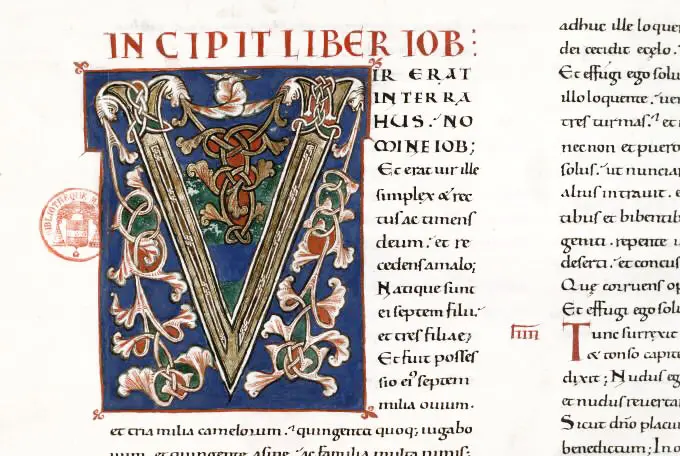 INCIPIT LIBER IOB:
VIR ERAT
IN TERRA
HUS. NO
MINE IOB;
Et erat uir ille
simplex & rec
tus ac timens
deum. et re
cedens a malo;
Natique sunt
ei septem filii.
et tres filiae;
Et fuit posses
sio ei' septem
milia ouium.
et tria milia camelorum. quingenta quoq; iuga bo
uum. et quingente asine. ac familia multa nimis;
adhuc ille loque
dei cecidit e celo.
Et effugi ego solu
illo loquente. uen
tres turmas. et
nec non et puero
solus. ut nunciar
alius intrauit. e
tibus et bibentib
geniti. repente u
deserti. et concus
Que corruens op
Et effugi ego solu
Tunc surrexit
& tonso capite
dixit; Nudus eg
et nudus reuerta
Sicut dno placu
benedictum; In o
BIBLIOTHEQUE